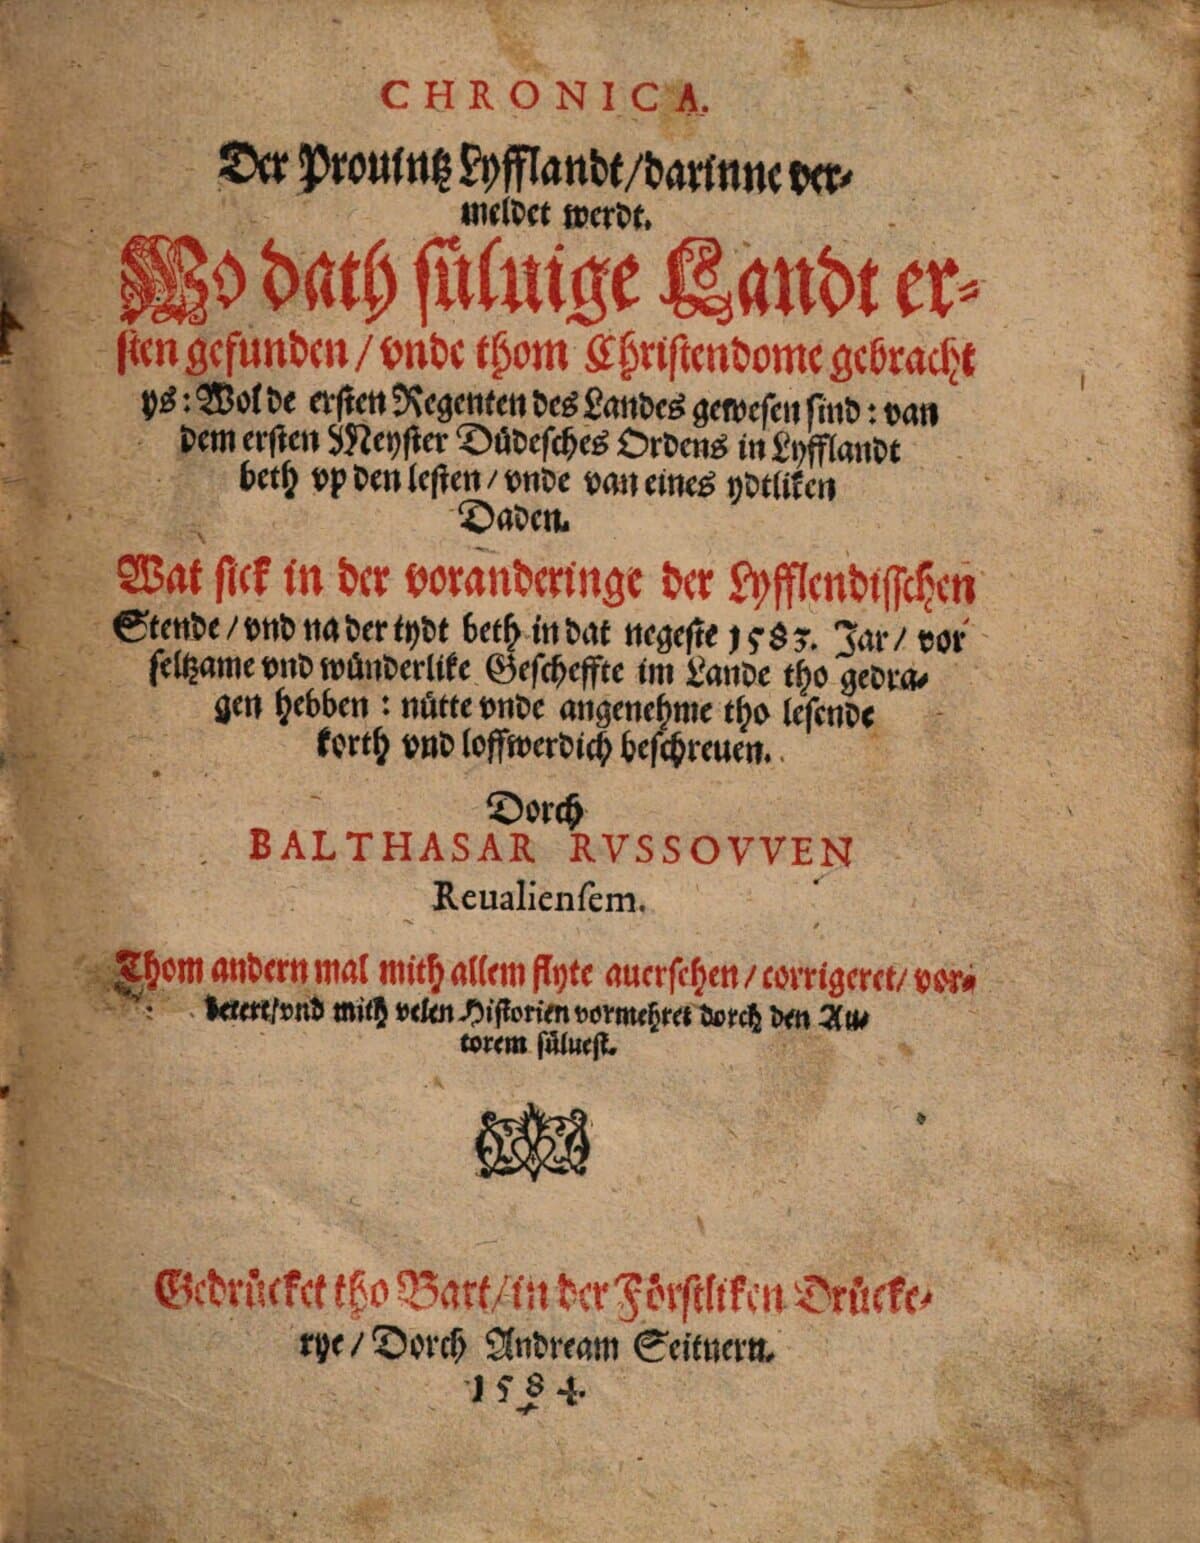 CHRONICA.
Der Prouintz Lyfflandt/darinne ver-
meldet werdt.
Wo dath süluige Landt er-
sten gefunden / vnde thom Christendome gebracht
ys: Wol de ersten Regenten des Landes gewesen sind: van
dem ersten Meyster Düdesches Ordens in Lyfflandt
beth vp den lesten / vnde van eines ydtliken
Daden.
Wat sick in der voranderinge der Lyfflendisschen
Stende / vnd na der tydt beth in dat negeste 1583. Jar / vor
seltzame vnd wünderlike Gescheffte im Lande tho gedra-
gen hebben : nütte vnde angenehme tho lesende
korth vnd loffwerdich beschreuen.
Dorch
BALTHASAR RVSSOVVEN
Reualiensem.
Thom andern mal mith allem flyte auersehen / corrigeret / vor-
betert/vnd mith velen Historien vormehret dorch den Au-
torem sülvest.
Gedrücket tho Bart/in der Förstliken Drücke-
rye / Dorch Andream Seitnern.
1584.